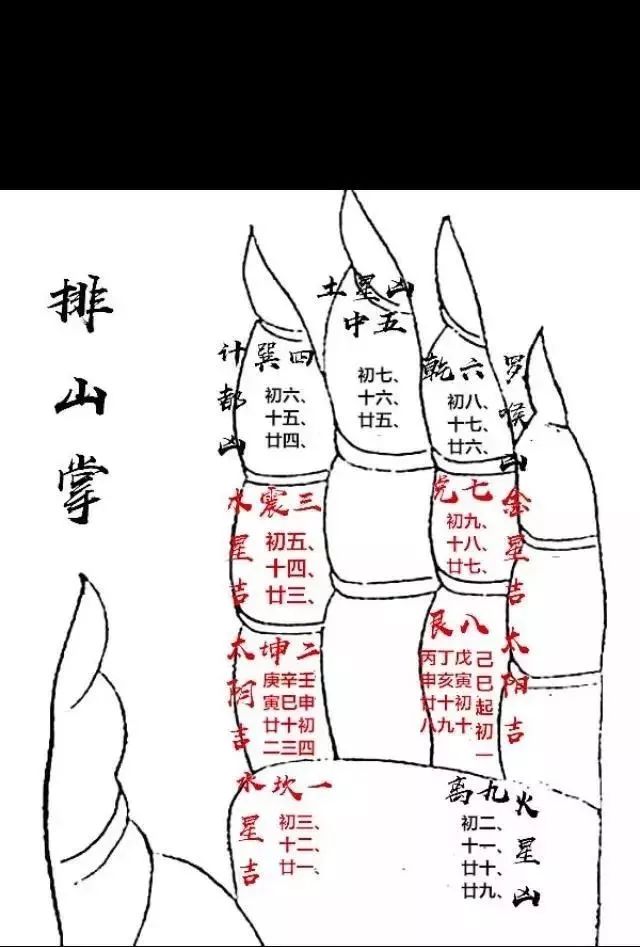 排山掌
计都凶
巽四
初六、
十五、
廿四、
土星凶
中五
初七、
十六、
廿五、
乾六
初八、
十七、
廿六、
罗喉凶
水星吉
震三
初五、
十四、
廿三、
兑七
初九、
十八、
廿七、
金星吉
太阴吉
坤二
壬申初四
辛巳十三
庚寅廿二
艮八
己巳起初一
戊寅初十
丁亥十九
丙申廿八
太阳吉
水星吉
坎一
初三、
十二、
廿一、
离九
初二、
十一、
廿十、
廿九、
火星凶